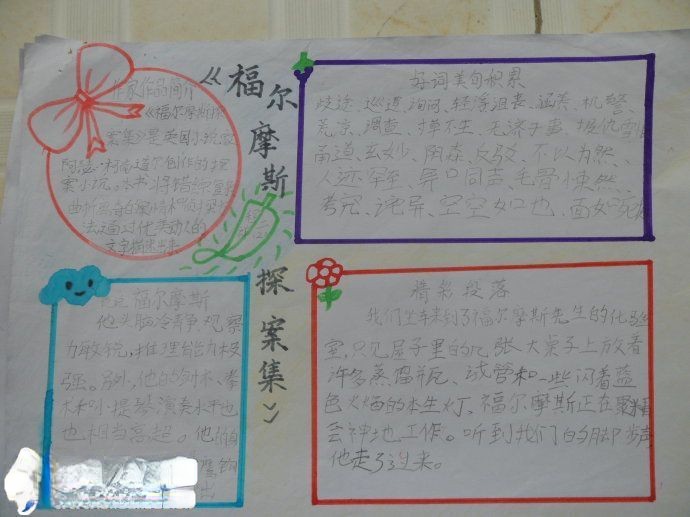 《福尔摩斯探案集》
作家作品简介
《福尔摩斯探
案集》是英国小说家
阿瑟·柯南道尔创作的探
案小说。本书将错综复杂
曲折离奇的
法通过优美动人的
文字描述出来
好词美句积累
歧途、巡逻、询问、轻浮、沮丧、逼秀、机警、
荒凉、调查、无济于事、报仇雪恨
甬道、玄妙、阴森、反驳、不以为然、
人迹罕至、异口同声、毛骨悚然、
考究、诧异、空空如也、面如死灰
福尔摩斯
他头脑冷静、观察
力敏锐,推理能力极
强。另外,他的剑术、拳
术和小提琴演奏水平也
也相当高超。他
鹰钩
出
精彩段落
我们坐车来到了福尔摩斯先生的化验
室,只见屋子里的几张大桌子上放着
许多蒸馏瓶、试管和一些闪着蓝
色火焰的本生灯,福尔摩斯正在聚精
会神地工作。听到我们的脚步声
他走了过来。